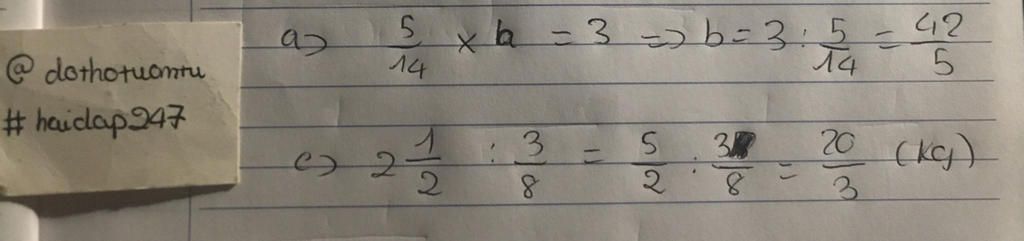 @ dothotuongtu
# haidap247
a) 5/14 × b = 3 => b = 3 : 5/14 = 42/5
c) 2 1/2 : 3/8 = 5/2 : 3/8 = 20/3 (kg)